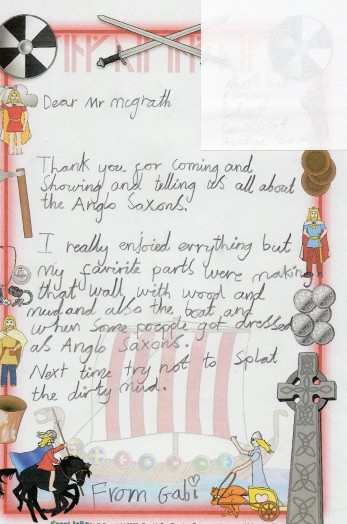 Dear Mr mcgrath
Thank you for coming and
Showing and telling us all about
the Anglo Saxons.
I really enjoied errything but
my favirite parts were making
that wall with wood and
mud and also the boat and
when some people got dressed
as Anglo Saxons.
Next time try not to splat
the dirty mud.
From Gabi